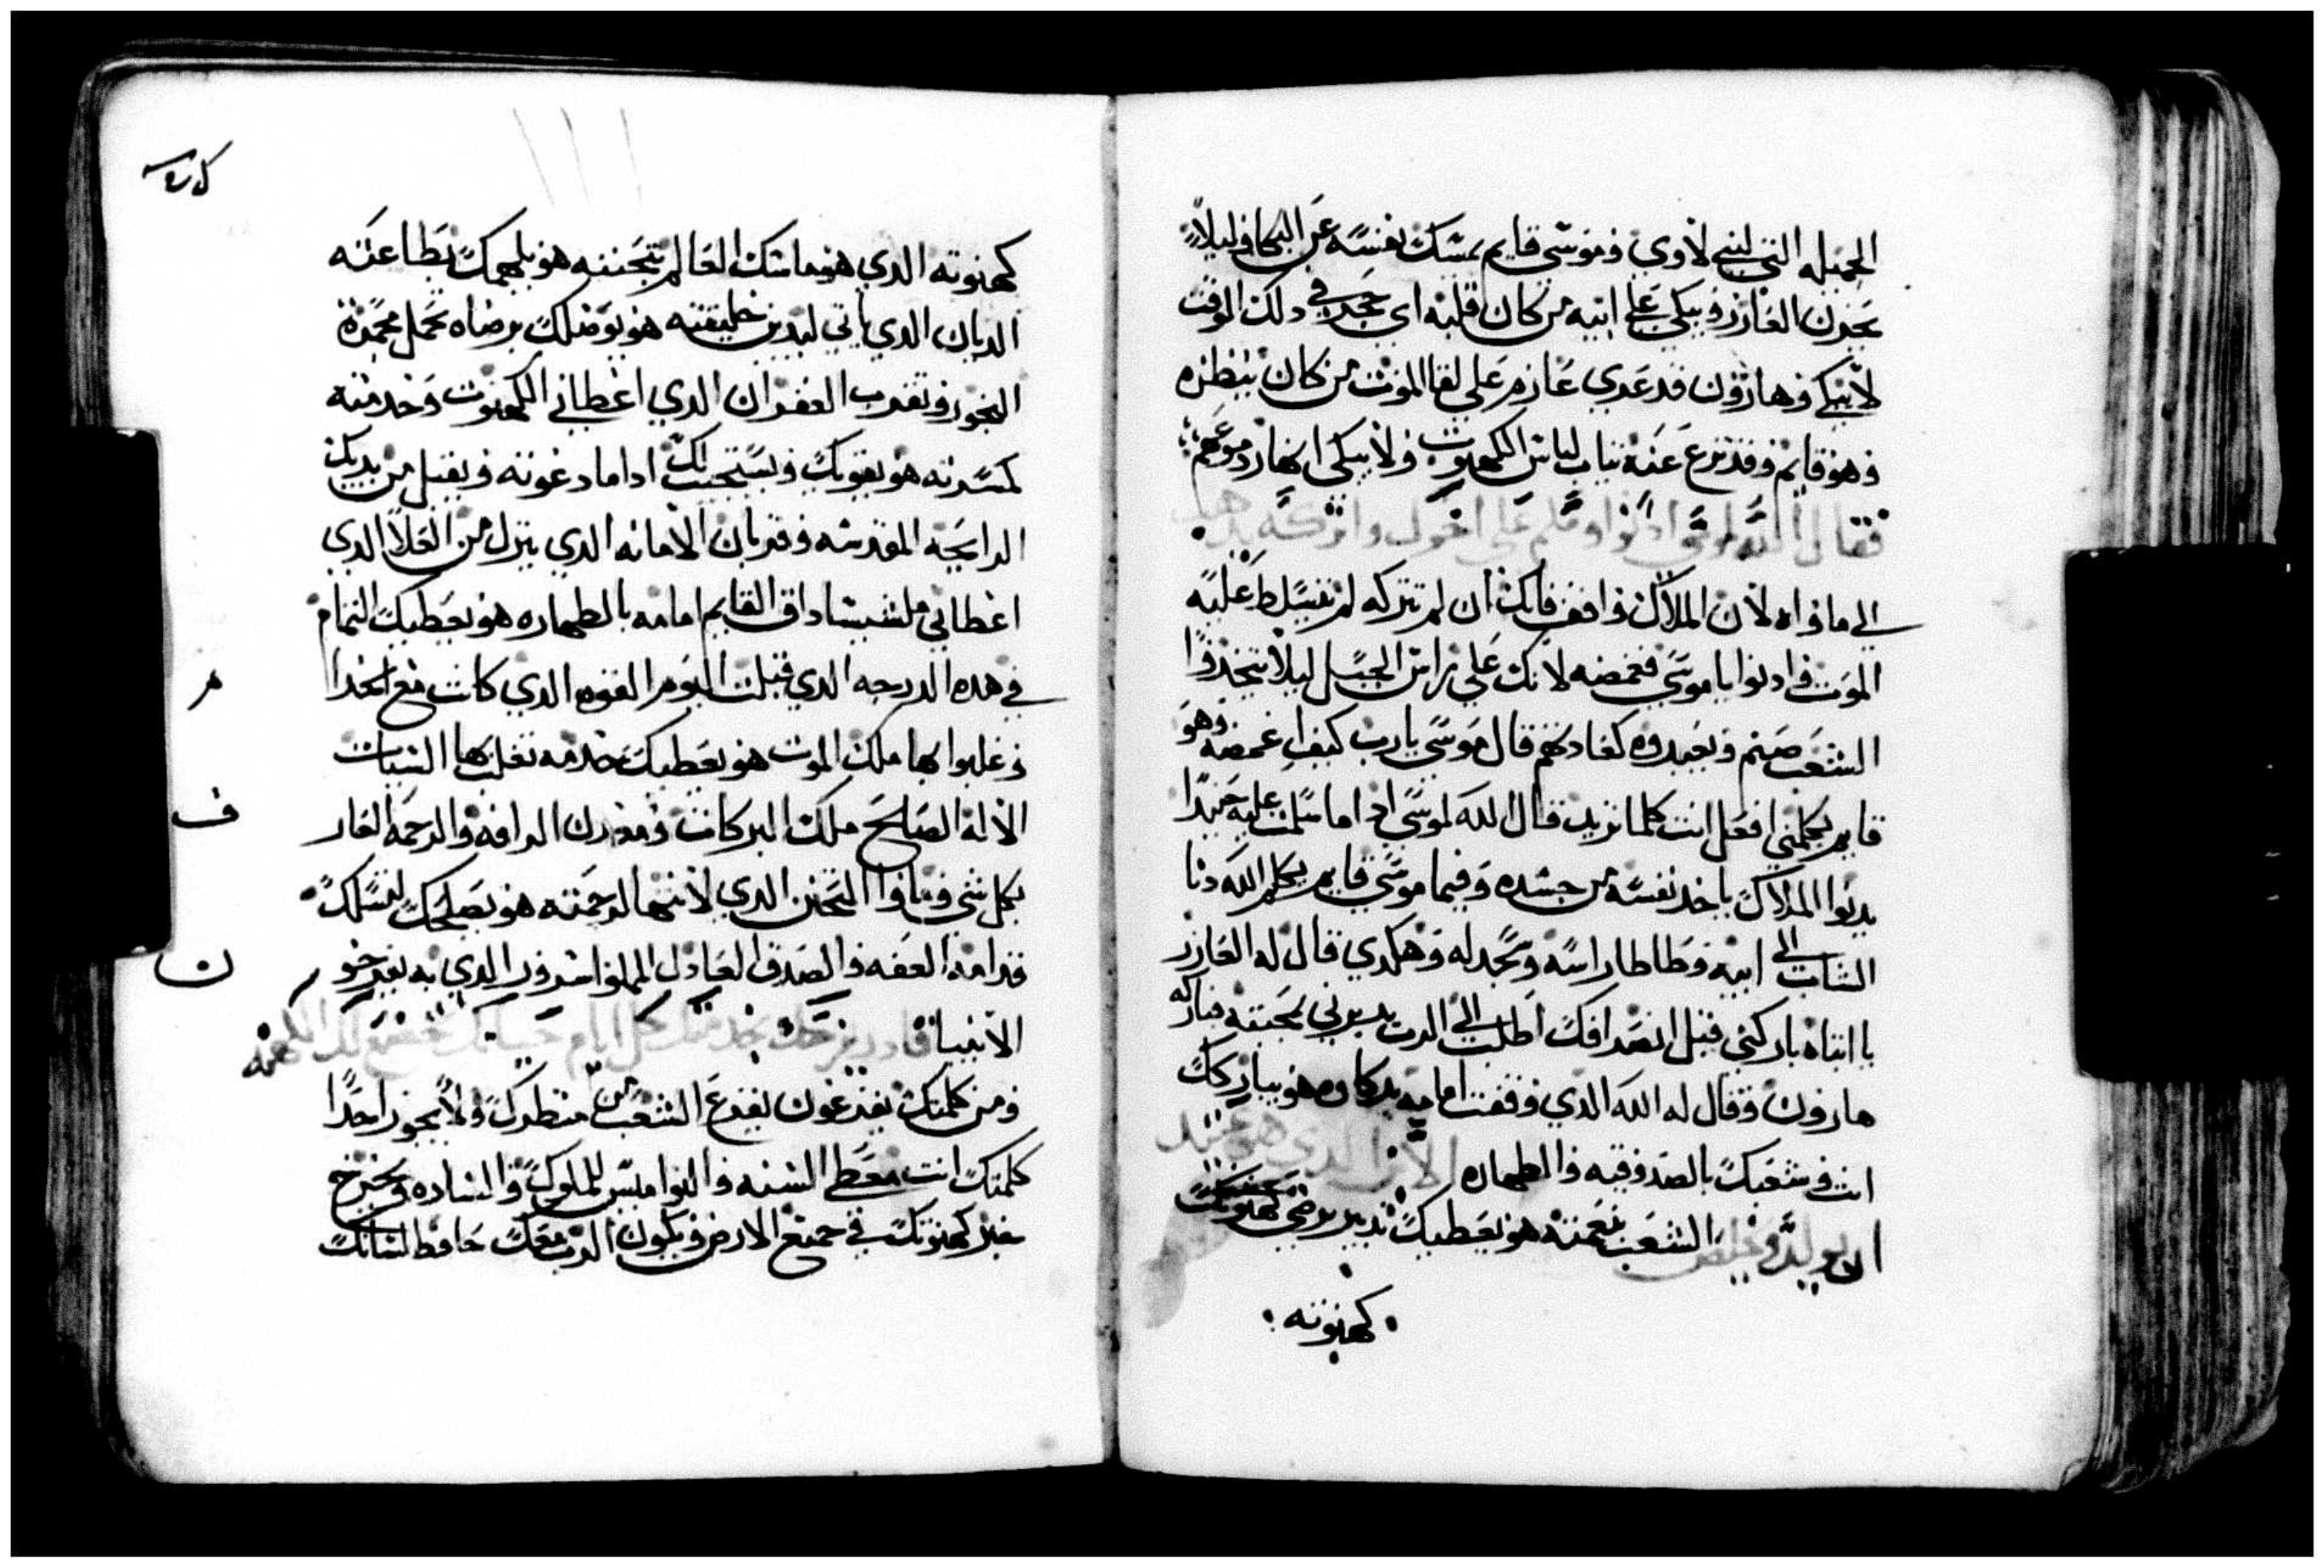 الجميله التي لبني لاوي وموسى قايم يمسك نفسه عن البكا وليلاً
يحزن العازر ويبكي على ابيه من كان قلبه اي حجر في دلك الوقت
لا يبكي وهارون قد عدي عازم على لقا الموت من كان ينظره
وهو قايم وقد نزع عنه تياب لباس الكهنوت ولا يبكي انهار دموعهم
فقال الله لموسى ادنوا وسلم على اخوك واتركه يدهب
الى ماواه لان الملاك واقف فانك ان لم تتركه لم يتسلط عليه
الموت فادنوا يا موسى فغمضه لانك على راس الجبل ليلا يتخدوا
الشعب صنم ويعبدوه كعادتهم قال موسى يارب كيف اغمضه وهو
قايم يكلمني افعل انت كلما تريد قال الله لموسى ادا ما سلمت عليه جيدًا
يدنوا الملاك ياخد نفسه من جسده وفيما موسى قايم يكلم الله دنا
الشاب الى ابيه وطاطا راسه وسجد له وهكدي قال له العازر
يا ابتاه باركني قبل انصرافك اطلب الى الرب يدبرني بمحبته فباركه
هارون وقال له الله الدي وقفت امامه بدكاوه هو يباركك
انت وشعبك بالصدوقيه والطهاره الازلي الدي هو عتيد
ان يولد ويخلص الشعب بنعمته هو يعطيك تدبير يرضي كهنوتك
كهنوته
كهنوته الدي هو ماسك العالم بتحننه هو يلهمك بطاعته
الديان الدي ياتي ليدين خليقته هو يوصلك برضاه تحمل مجمرة
البخور وتقرب الغفران الدي اعطاني الكهنوت وخدمته
كمسرته هو يقويك ويستجيب لك ادا ما دعوته ويقبل من يديك
الرايحة المقدسه وقربان الامانه الدي ينزل من العلا الدي
اعطاني ملشيساداق القايم امامه بالطهاره هو يعطيك التمام
في هده الدرجه الدي قبلت اليوم القوه الدي كانت مع
وغلبوا بها ملك الموت هو يعطيك خدمه تغلب بها
الاله الصالح ملك البركات ومعدن الرافه والرحمه
بكل شي التحنن الدي لا انتها لرحمته هو يصلحك
قدامه العفه والصدق العادل المملوا الدي به يفرحوا
الانبيا كل ايام حياتك تخضع لك الكهنه
ومن كلمتك يفزعون يفزع الشعب من منظرك ولا يجوز احدًا
كلمتك انت معطي السنه والنواميس للملوك والساده ويخرج
خبر كهنوتك في جميع الارض ويكون الرب معك حافظ لسانك